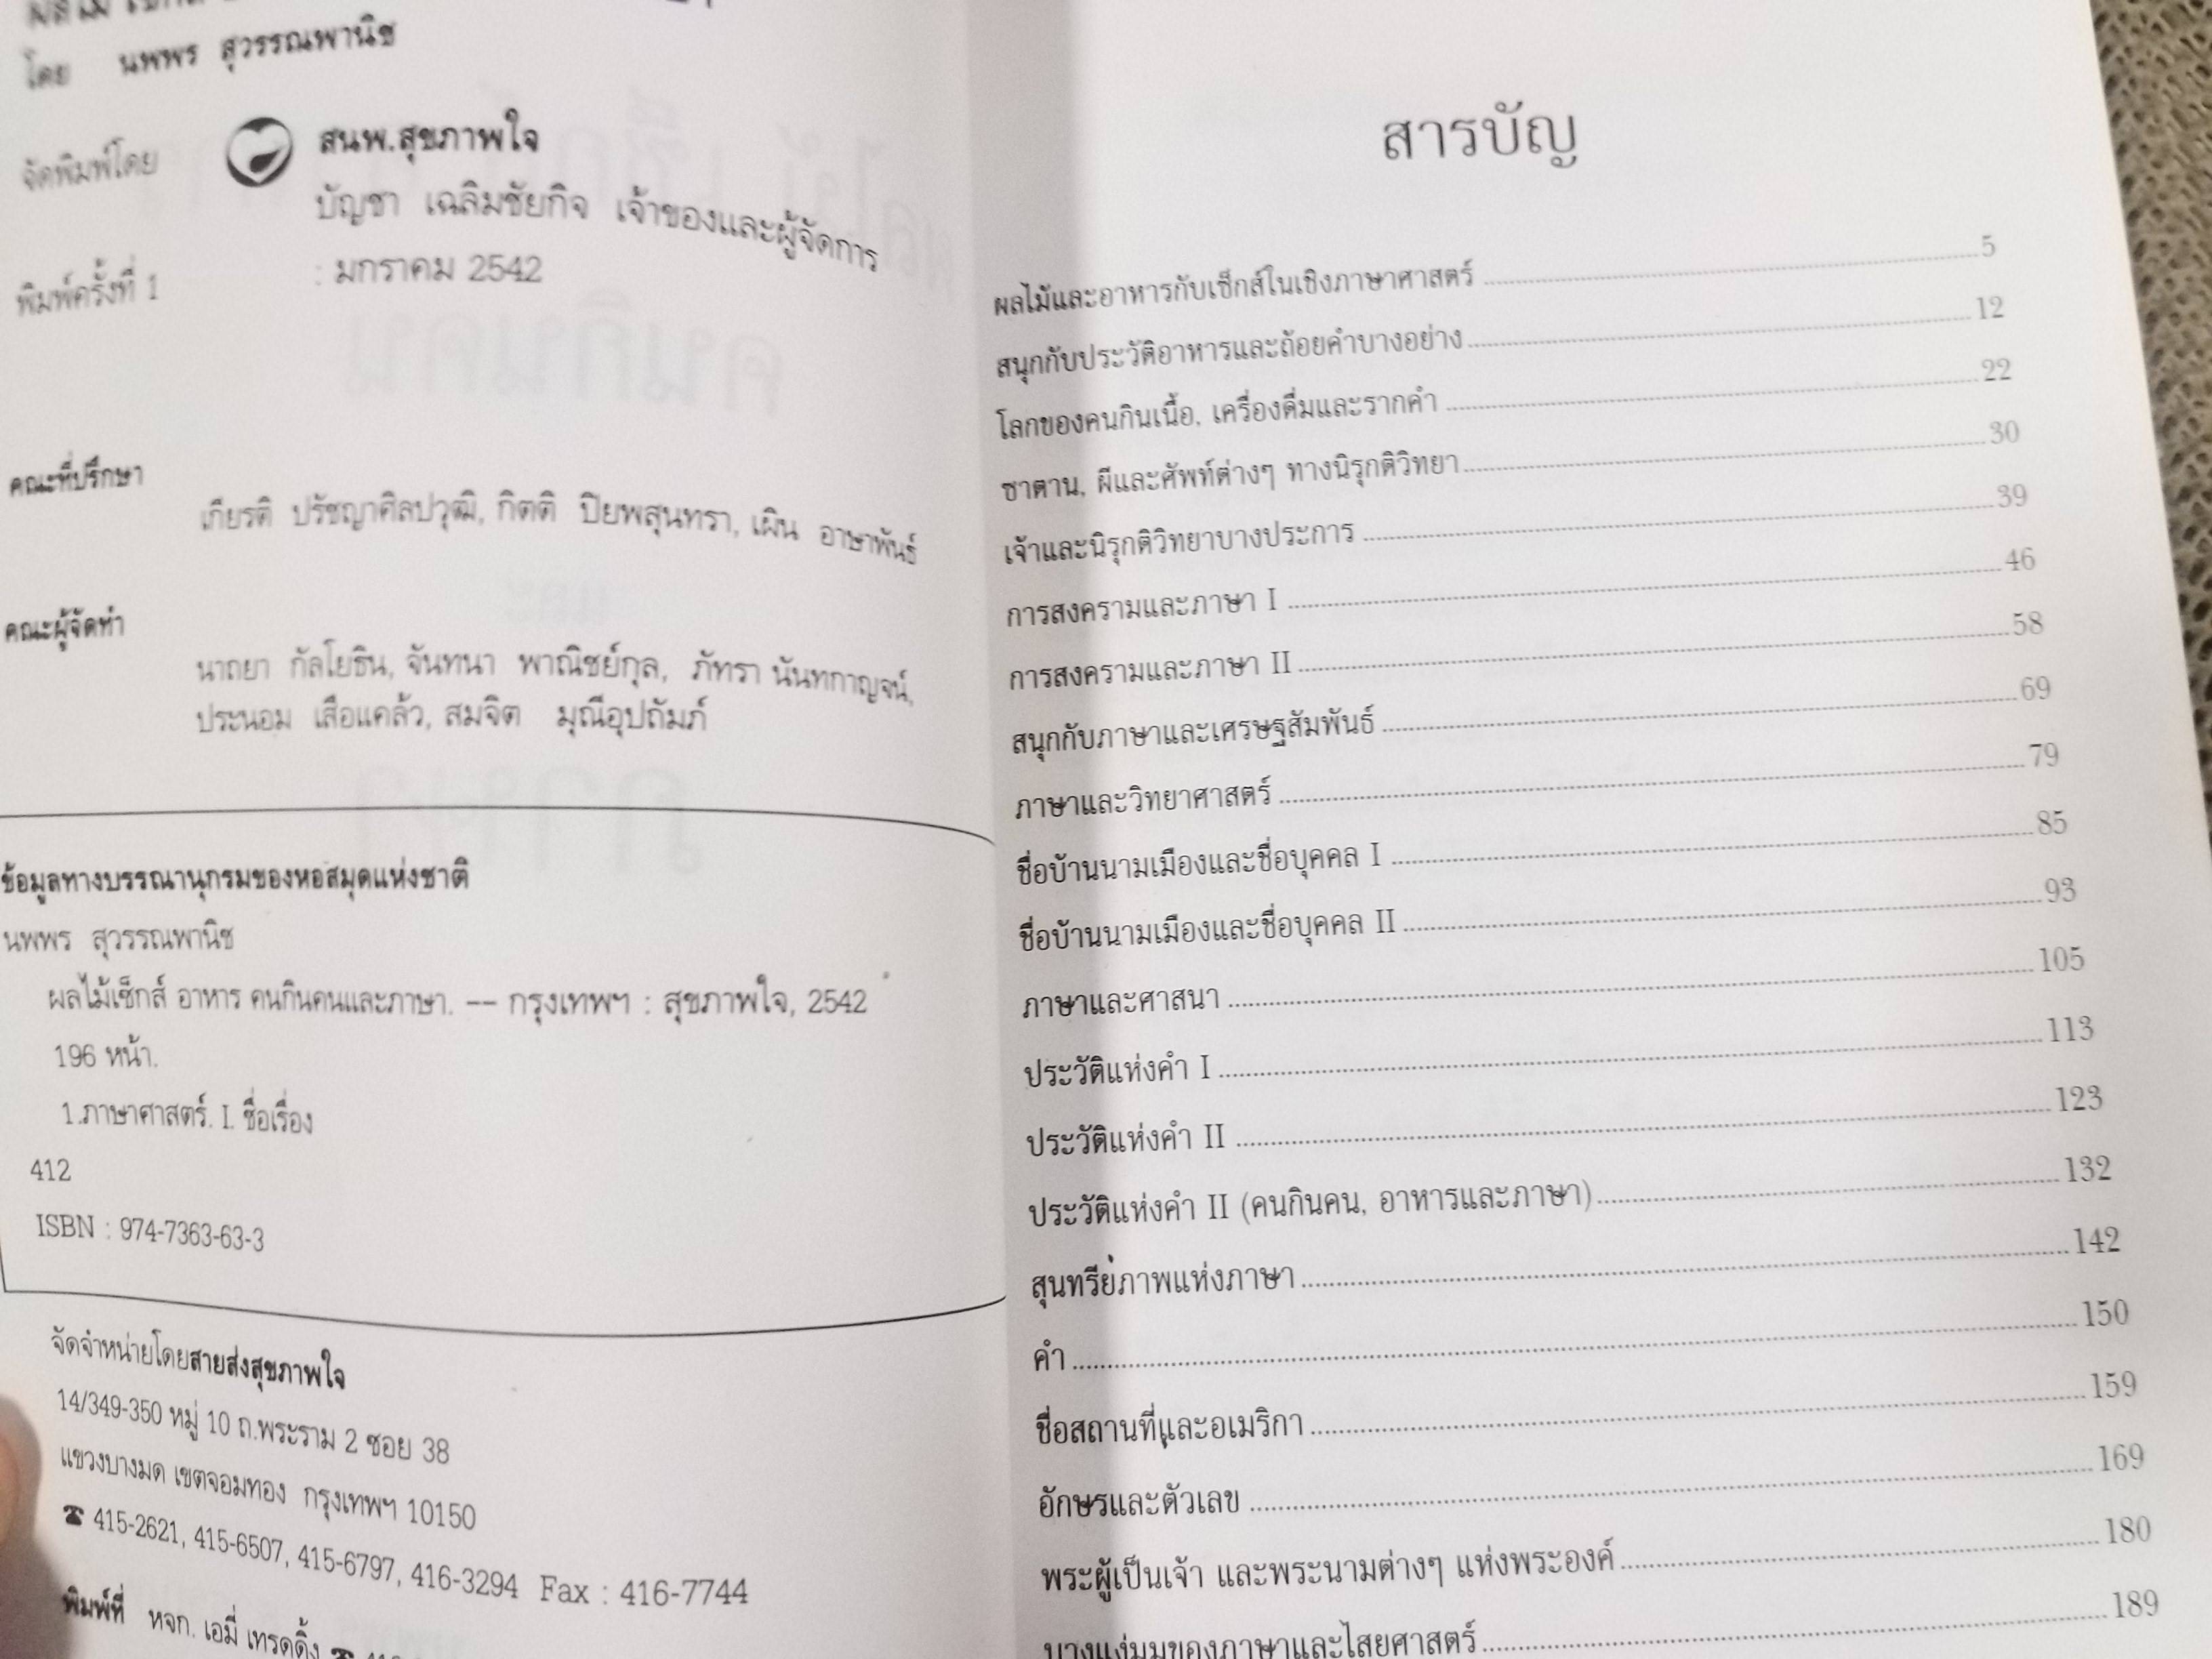 โดย นพพร สุวรรณพานิช
จัดพิมพ์โดย สนพ.สุขภาพใจ
บัญชา เฉลิมชัยกิจ เจ้าของและผู้จัดการ
พิมพ์ครั้งที่ 1 : มกราคม 2542
คณะที่ปรึกษา
เกียรติ ปรัชญาศิลปวุฒิ, กิตติ ปิยพสุนทรา, เผิน อาษาพันธ์
คณะผู้จัดทำ
นาถยา กัลโยธิน, จันทนา พาณิชย์กุล, ภัทรา นันทกาญจน์,
ประนอม เสือแคล้ว, สมจิต มุณีอุปถัมภ์
ข้อมูลทางบรรณานุกรมของหอสมุดแห่งชาติ
นพพร สุวรรณพานิช
ผลไม้เซ็กส์ อาหาร คนกินคนและภาษา. -- กรุงเทพฯ : สุขภาพใจ, 2542
196 หน้า.
1.ภาษาศาสตร์. I. ชื่อเรื่อง
412
ISBN : 974-7363-63-3
จัดจำหน่ายโดยสายส่งสุขภาพใจ
14/349-350 หมู่ 10 ถ.พระราม 2 ซอย 38
แขวงบางมด เขตจอมทอง กรุงเทพฯ 10150
☎ 415-2621, 415-6507, 415-6797, 416-3294 Fax : 416-7744
พิมพ์ที่ หจก. เอมี่ เทรดดิ้ง ☎
สารบัญ
ผลไม้และอาหารกับเซ็กส์ในเชิงภาษาศาสตร์ ..... 5
สนุกกับประวัติอาหารและถ้อยคำบางอย่าง ..... 12
โลกของคนกินเนื้อ, เครื่องดื่มและรากคำ ..... 22
ซาตาน, ผีและศัพท์ต่างๆ ทางนิรุกติวิทยา ..... 30
เจ้าและนิรุกติวิทยาบางประการ ..... 39
การสงครามและภาษา I ..... 46
การสงครามและภาษา II ..... 58
สนุกกับภาษาและเศรษฐสัมพันธ์ ..... 69
ภาษาและวิทยาศาสตร์ ..... 79
ชื่อบ้านนามเมืองและชื่อบุคคล I ..... 85
ชื่อบ้านนามเมืองและชื่อบุคคล II ..... 93
ภาษาและศาสนา ..... 105
ประวัติแห่งคำ I ..... 113
ประวัติแห่งคำ II ..... 123
ประวัติแห่งคำ II (คนกินคน, อาหารและภาษา) ..... 132
สุนทรีย์ภาพแห่งภาษา ..... 142
คำ ..... 150
ชื่อสถานที่และอเมริกา ..... 159
อักษรและตัวเลข ..... 169
พระผู้เป็นเจ้า และพระนามต่างๆ แห่งพระองค์ ..... 180
บางแง่มุมของภาษาและไสยศาสตร์ ..... 189